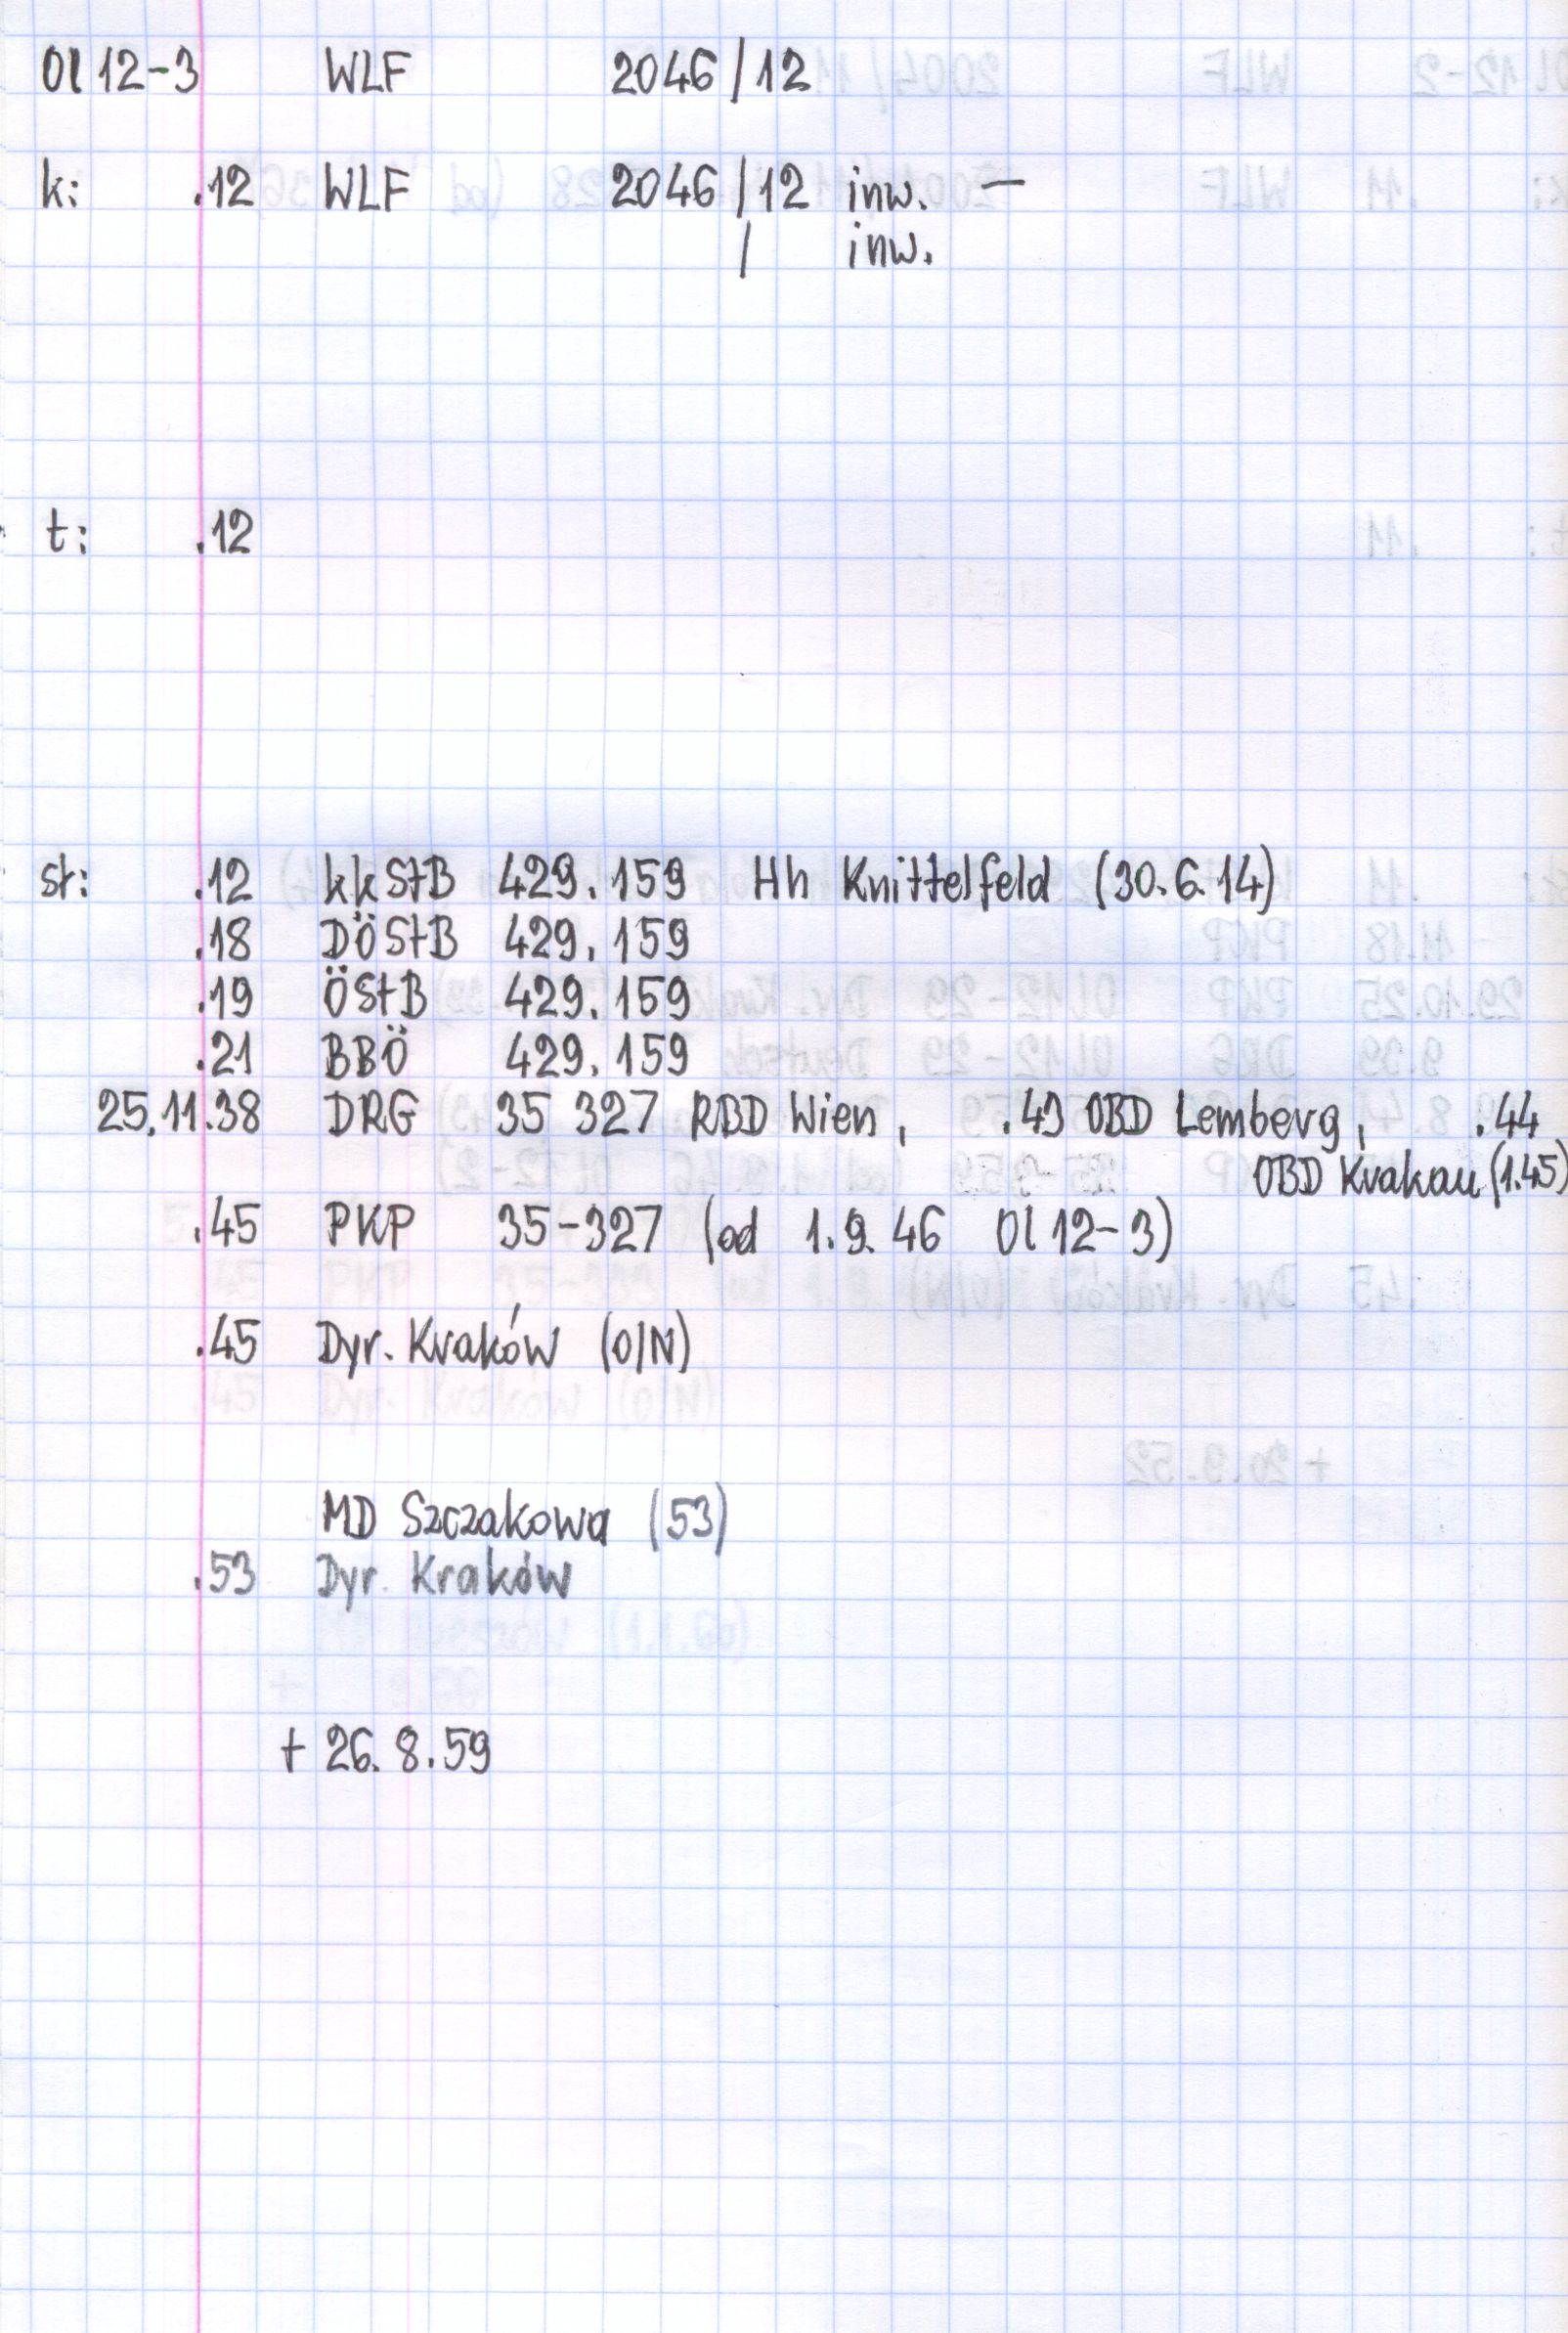 Ol 12-3 WLF 2046/12
k: .12 WLF 2046/12 inw. —
/ inw.
t: .12
st: .12 kkStB 429.159 Hh Knittelfeld (30.6.14)
.18 DÖStB 429.159
.19 ÖStB 429.159
.21 BBÖ 429.159
25.11.38 DRG 35 327 RBD Wien, .43 OBD Lemberg, .44
OBD Krakau (1.45)
.45 PKP 35-327 (od 1.9.46 Ol 12-3)
.45 Dyr. Kraków (O/N)
MD Szczakowa (53)
.53 Dyr. Kraków
+ 26.8.59